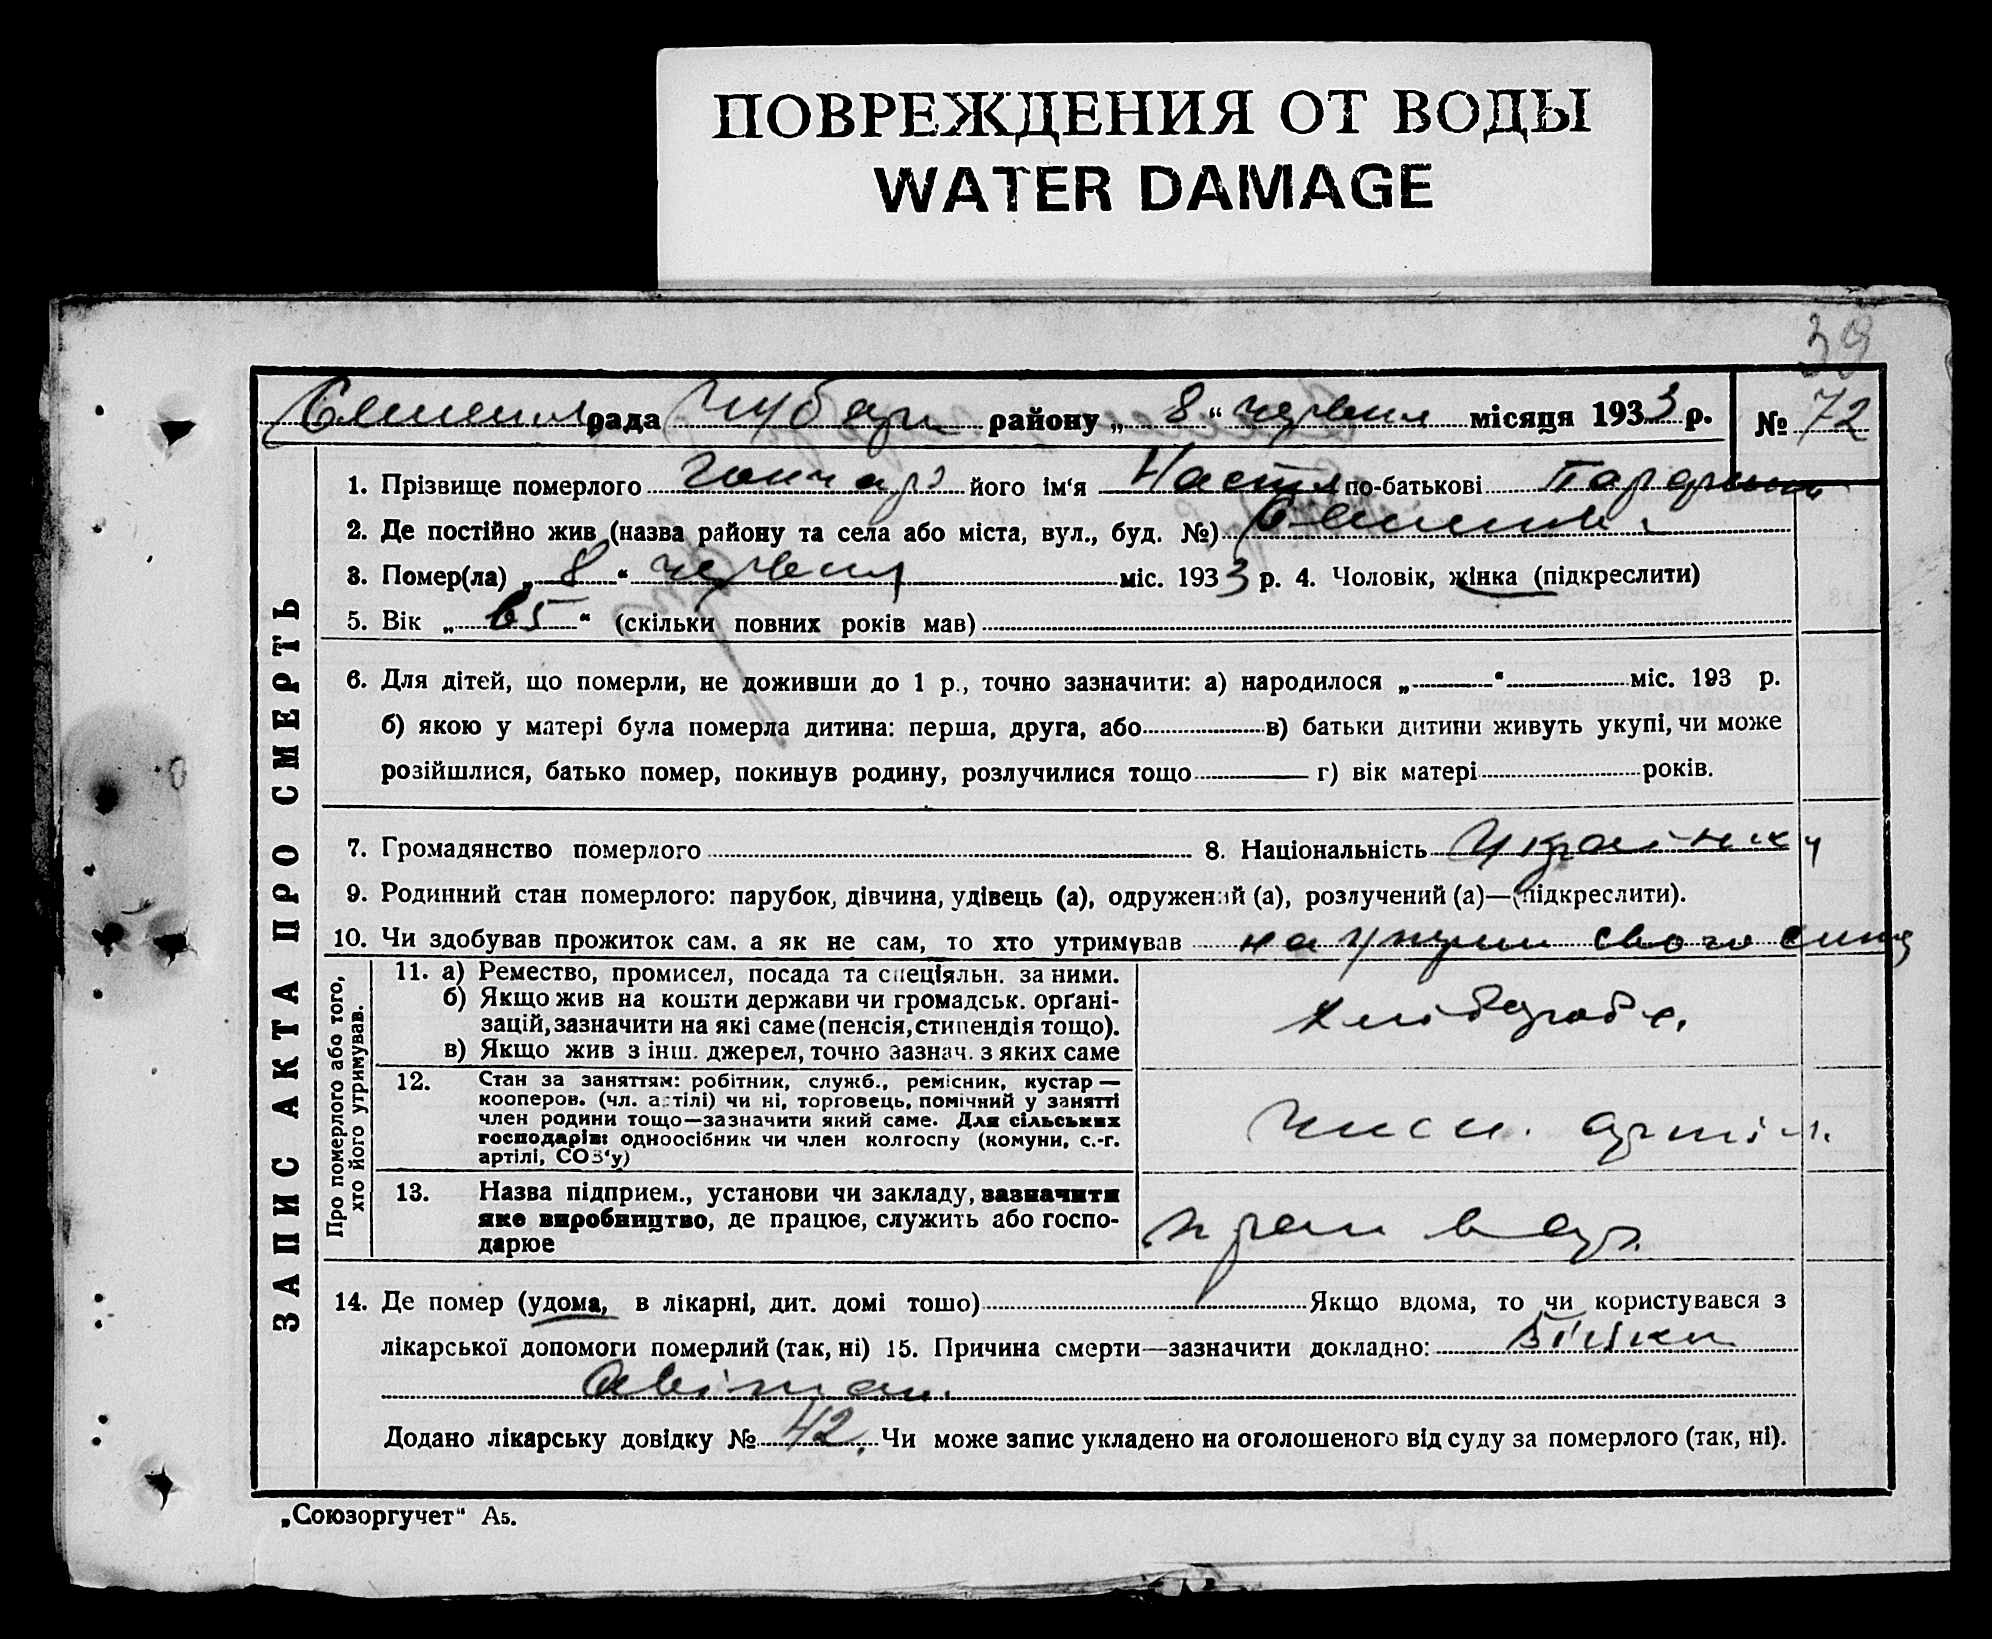 ПОВРЕЖДЕНИЯ ОТ ВОДЫ
WATER DAMAGE
39
рада Чубарі району „ 8 “ червня місяця 1933 р. № 72
1. Прізвище померлого Гончар його ім‘я Настя по-батькові
2. Де постійно жив (назва району та села або міста, вул., буд. №)
3. Помер(ла) „ 8 “ червня міс. 1933 р. 4. Чоловік, жінка (підкреслити)
5. Вік „ 65 “ (скільки повних років мав)
6. Для дітей, що померли, не доживши до 1 р., точно зазначити: а) народилося „ “ міс. 193 р.
б) якою у матері була померла дитина: перша, друга, або в) батьки дитини живуть укупі, чи може
розійшлися, батько помер, покинув родину, розлучилися тощо г) вік матері років.
7. Громадянство померлого 8. Національність Українка
9. Родинний стан померлого: парубок, дівчина, удівець (а), одружений (а), розлучений (а)—(підкреслити).
10. Чи здобував прожиток сам, а як не сам, то хто утримував на утрим свого сина
ЗАПИС АКТА ПРО СМЕРТЬ
Про померлого або того,
хто його утримував.
11. а) Ремество, промисел, посада та спеціяльн. за ними.
б) Якщо жив на кошти держави чи громадськ. орґані-
зацій, зазначити на які саме (пенсія, стипендія тощо).
в) Якщо жив з інш. джерел, точно зазнач. з яких саме
хлібороб
12. Стан за заняттям: робітник, служб., ремісник, кустар —
кооперов. (чл. артілі) чи ні, торговець, помічний у занятті
член родини тощо—зазначити який саме. Для сільських
господарів: одноосібник чи член колгоспу (комуни, с.-г.
артілі, СОЗ‘у)
член. артіл.
13. Назва підприєм., установи чи закладу, зазначити
яке виробництво, де працює, служить або госпо-
дарює
14. Де помер (удома, в лікарні, дит. домі тощо) Якщо вдома, то чи користувався з
лікарської допомоги померлий (так, ні) 15. Причина смерти—зазначити докладно:
Додано лікарську довідку № 42. Чи може запис укладено на оголошеного від суду за померлого (так, ні).
„Союзоргучет“ А5.